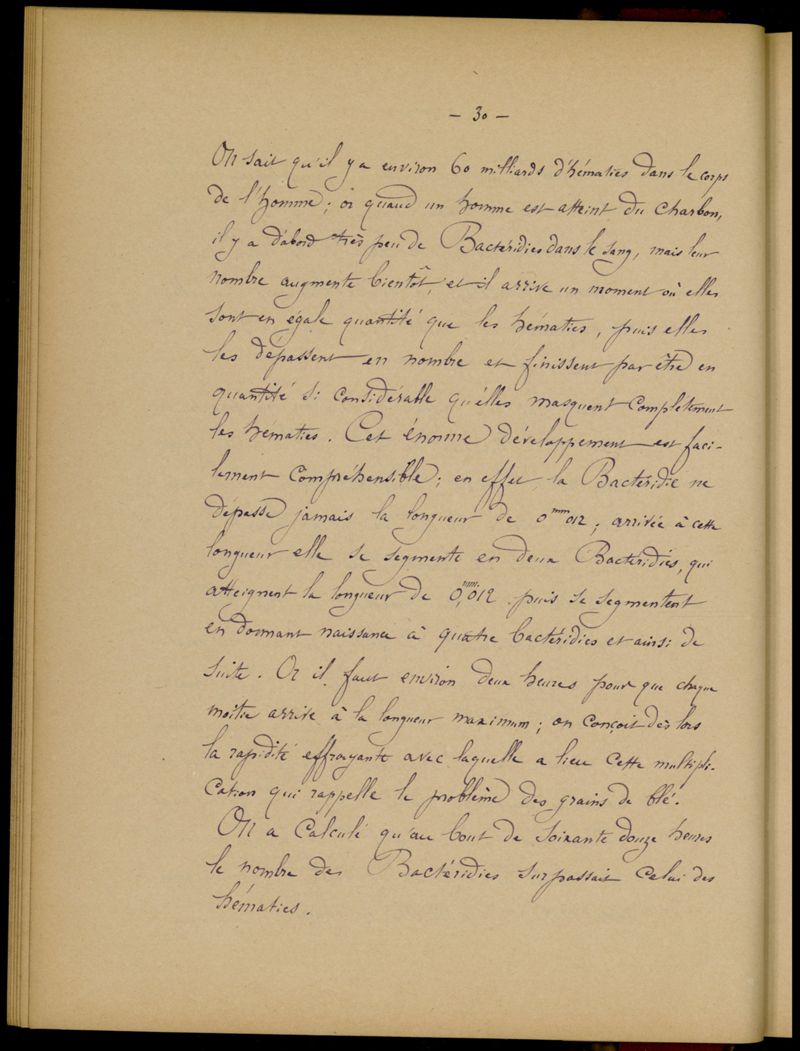 - 30 -
On sait qu'il y a environ 60 milliards d'hématies dans le corps
de l'homme; or quand un homme est atteint du charbon,
il y a d'abord très peu de Bactéridies dans le sang, mais leur
nombre augmente bientôt, et il arrive un moment où elles
sont en égale quantité que les hématies, puis elles
les dépassent en nombre et finissent par être en
quantité si considérable qu'elles masquent complètement
les hématies. Cet énorme développement est faci-
lement compréhensible; en effet la Bactéridie ne
dépasse jamais la longueur de 0mm012; arrivée à cette
longueur elle se segmente en deux Bactéridies, qui
atteignent la longueur de 0,mm012 puis se segmentent
en donnant naissance à quatre bactéridies et ainsi de
suite. Or il faut environ deux heures pour que chaque
moitié arrive à la longueur maximum; on conçoit dès lors
la rapidité effrayante avec laquelle a lieu cette multipli-
cation qui rappelle le problème des grains de blé.
On a calculé qu'au bout de soixante douze heures
le nombre des Bactéridies surpassait celui des
hématies.